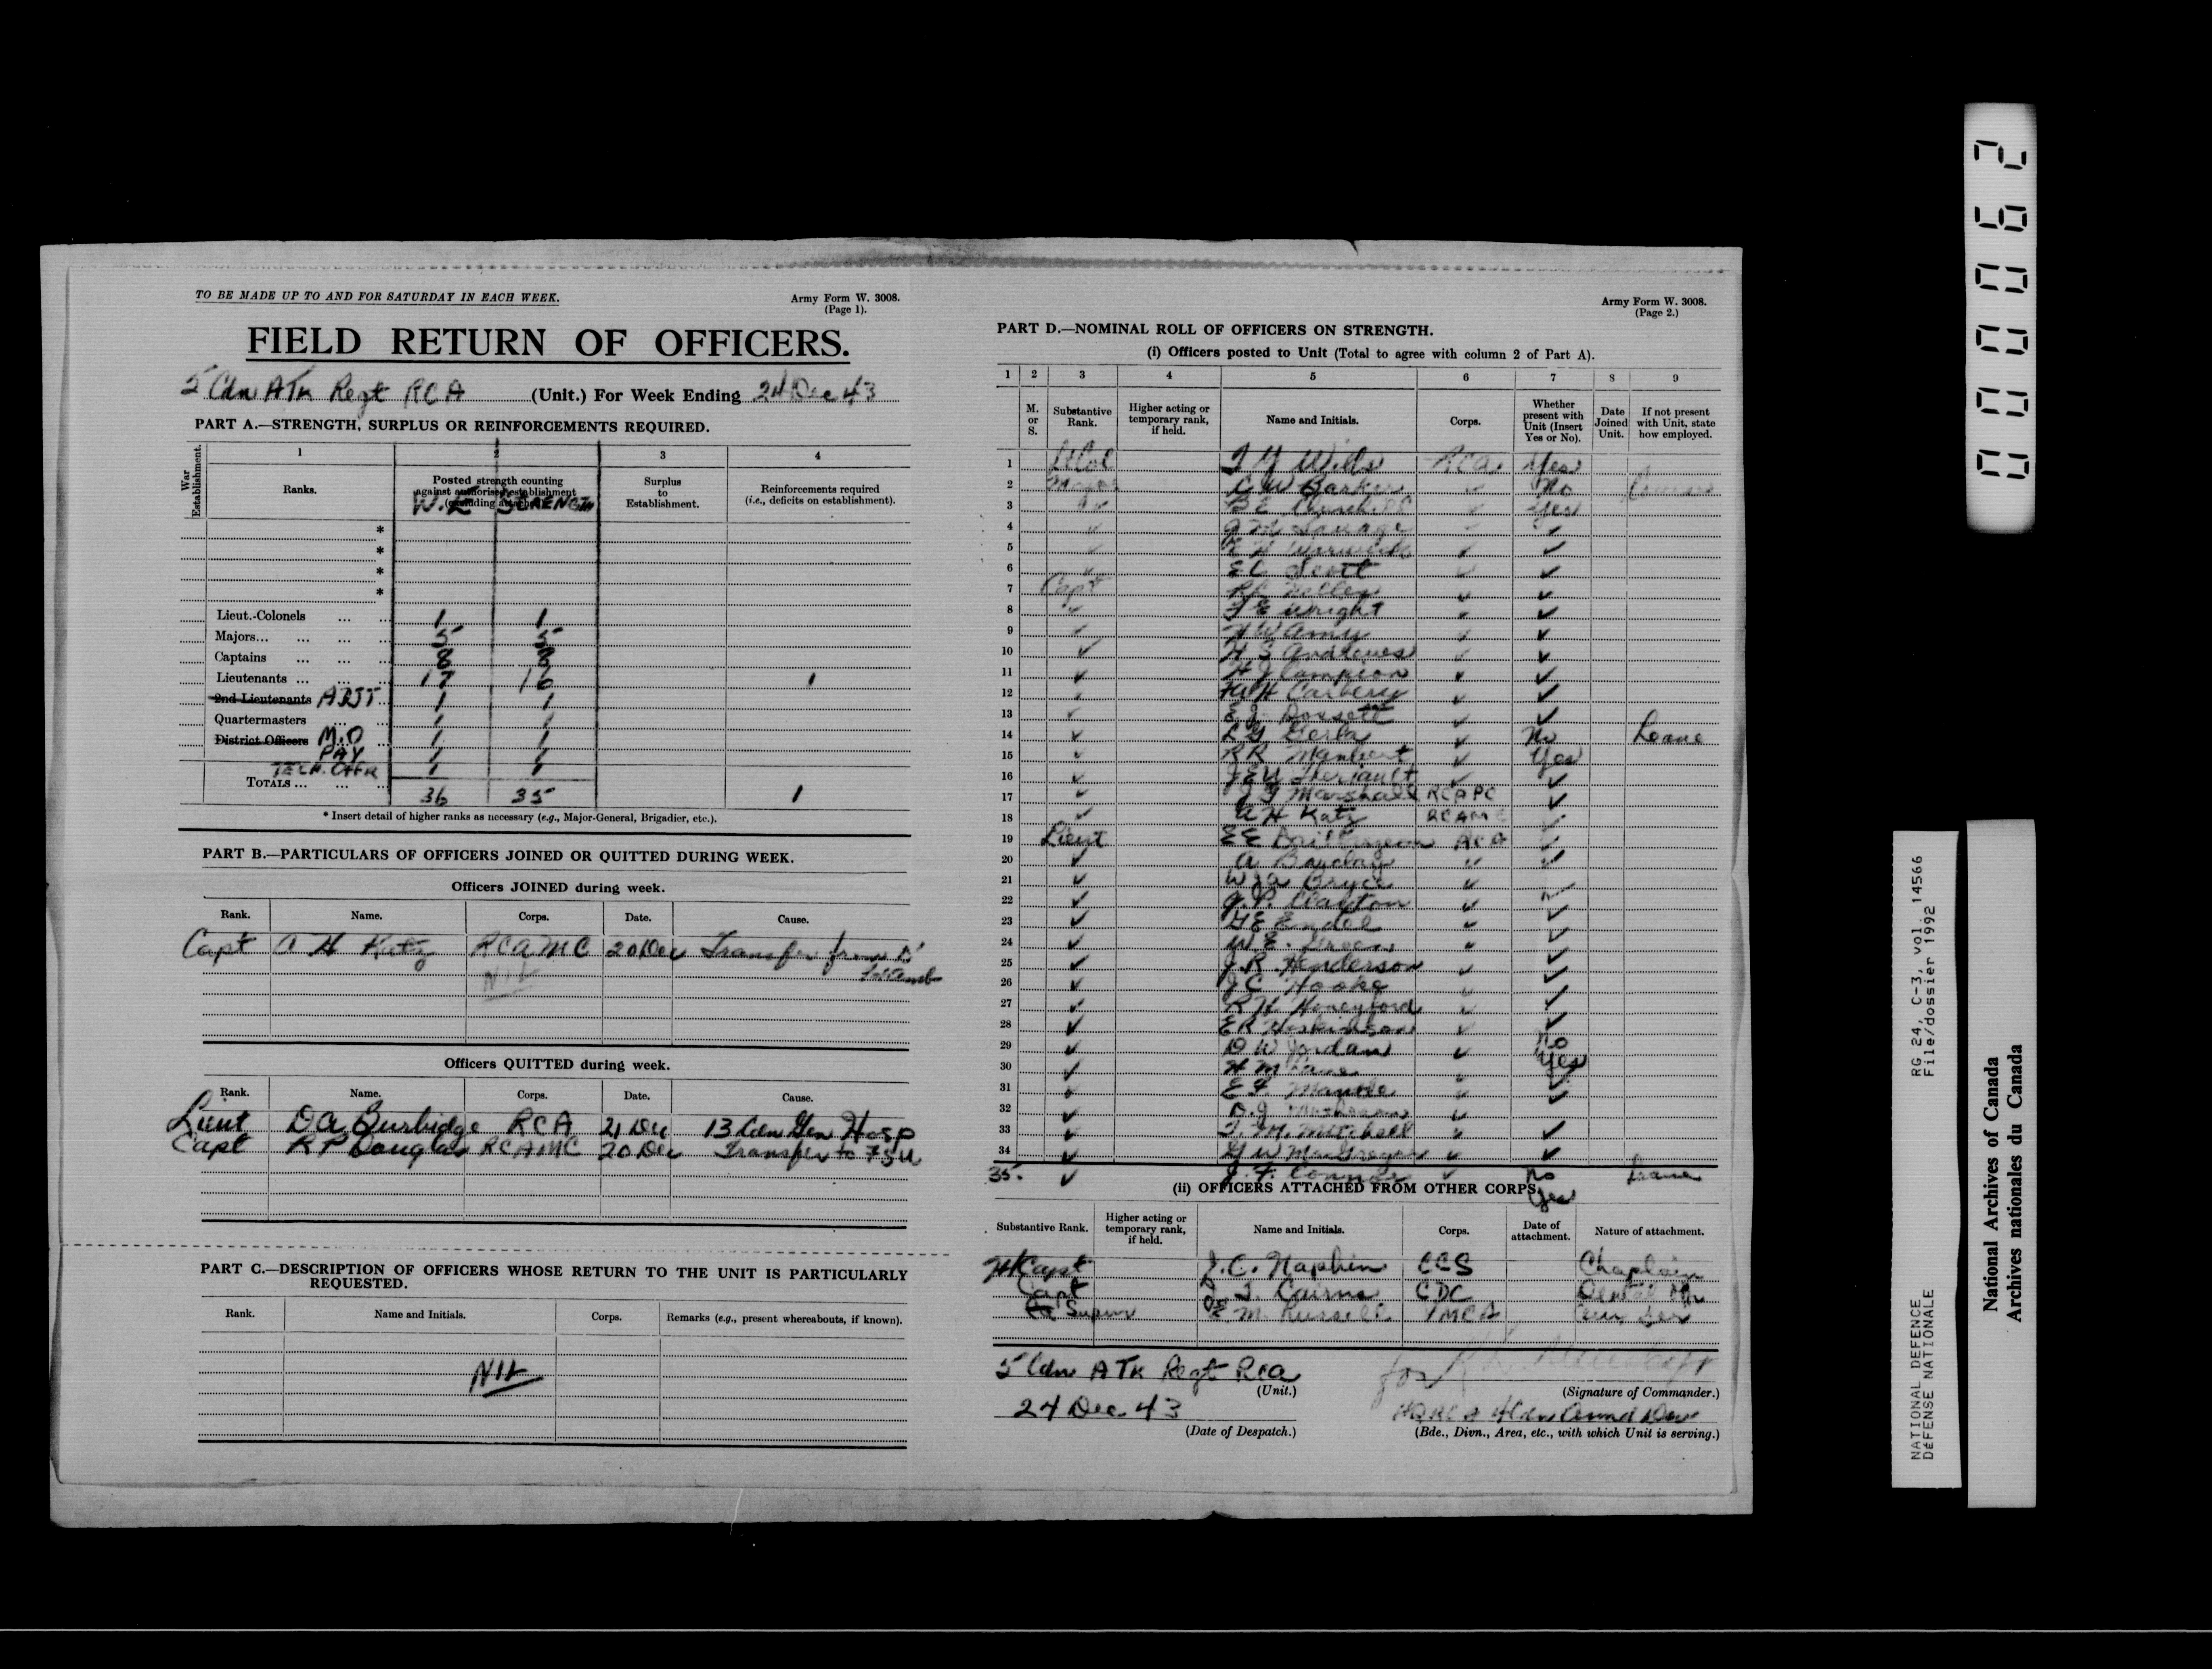 TO BE MADE UP TO AND FOR SATURDAY IN EACH WEEK.
Army Form W. 3008.
(Page 1).
FIELD RETURN OF OFFICERS.
5 Cdn ATk Regt RCA (Unit.) For Week Ending 24 Dec 43
PART A.—STRENGTH, SURPLUS OR REINFORCEMENTS REQUIRED.
War Establishment.
1 2 3 4
Ranks.
Posted strength counting
against authorised establishment
(excluding attached)
W.E STRENGTH
Surplus
to
Establishment.
Reinforcements required
(i.e., deficits on establishment).
*
*
*
*
Lieut.-Colonels ... 1 1
Majors... ... ... ... 5 5
Captains ... ... ... 8 8
Lieutenants ... ... ... 17 16 1
2nd Lieutenants ADJT 1 1
Quartermasters ... ... 1 1
District Officers M.O 1 1
PAY 1 1
TECH. OFFR 1 1
TOTALS ... ... ... 36 35 1
* Insert detail of higher ranks as necessary (e.g., Major-General, Brigadier, etc.).
PART B.—PARTICULARS OF OFFICERS JOINED OR QUITTED DURING WEEK.
Officers JOINED during week.
Rank. Name. Corps. Date. Cause.
Capt A H Katz RCAMC 20 Dec Transfer from
NIL
Officers QUITTED during week.
Rank. Name. Corps. Date. Cause.
Lieut D A Burbidge RCA 21 Dec 13 Cdn Gen Hosp
Capt R P Douglas RCAMC 20 Dec Transfer to
PART C.—DESCRIPTION OF OFFICERS WHOSE RETURN TO THE UNIT IS PARTICULARLY
REQUESTED.
Rank. Name and Initials. Corps. Remarks (e.g., present whereabouts, if known).
NIL
Army Form W. 3008.
(Page 2.)
PART D.—NOMINAL ROLL OF OFFICERS ON STRENGTH.
(i) Officers posted to Unit (Total to agree with column 2 of Part A).
1 2 3 4 5 6 7 8 9
M.
or
S.
Substantive
Rank.
Higher acting or
temporary rank,
if held.
Name and Initials.
Corps.
Whether
present with
Unit (Insert
Yes or No).
Date
Joined
Unit.
If not present
with Unit, state
how employed.
1 Wills RCA Yes
2 Major C W Barker " No
3 " B E Churchill " Yes
4 " Savage " ✓
5 " Warwick " ✓
6 " E C Scott " ✓
7 Capt " ✓
8 " Wright " ✓
9 " H W Amy " ✓
10 " H S Andrews " ✓
11 " H J Campion " ✓
12 " Carbery " ✓
13 " E J Dossett " ✓
14 " " No Leave
15 " R R Manbert " Yes
16 " Theriault " ✓
17 " Marshall RCAPC ✓
18 " A H Katz RCAMC ✓
19 Lieut E E RCA ✓
20 " A Barclay " ✓
21 " W J A Bryce " ✓
22 " Clayton " ✓
23 " Endel " ✓
24 " W E. Green " ✓
25 " J. R. Henderson " ✓
26 " J C Hooke " ✓
27 " R H Honeyford " ✓
28 " E R Hoskinson " ✓
29 " D W Jordan " No
30 " H M Lane " Yes
31 " Mantle " ✓
32 " "
33 " Mitchell " ✓
34 " G W MacGregor " ✓
35. " J. F. Connor " No Leave
Yes
(ii) OFFICERS ATTACHED FROM OTHER CORPS
Substantive Rank.
Higher acting or
temporary rank,
if held.
Name and Initials.
Corps.
Date of
attachment.
Nature of attachment.
H/Capt J. C. Naphin CCS Chaplain
Capt Cairns CDC Dental
Superv M. Russell YMCA
5 Cdn ATk Regt RCA
(Unit.)
for
(Signature of Commander.)
24 Dec 43
(Date of Despatch.)
HQ RCA 4 Cdn Armd Div
(Bde., Divn., Area, etc., with which Unit is serving.)
000062
RG 24, C-3, vol. 14566
File/dossier 1992
NATIONAL DEFENCE
DÉFENSE NATIONALE
National Archives of Canada
Archives nationales du Canada